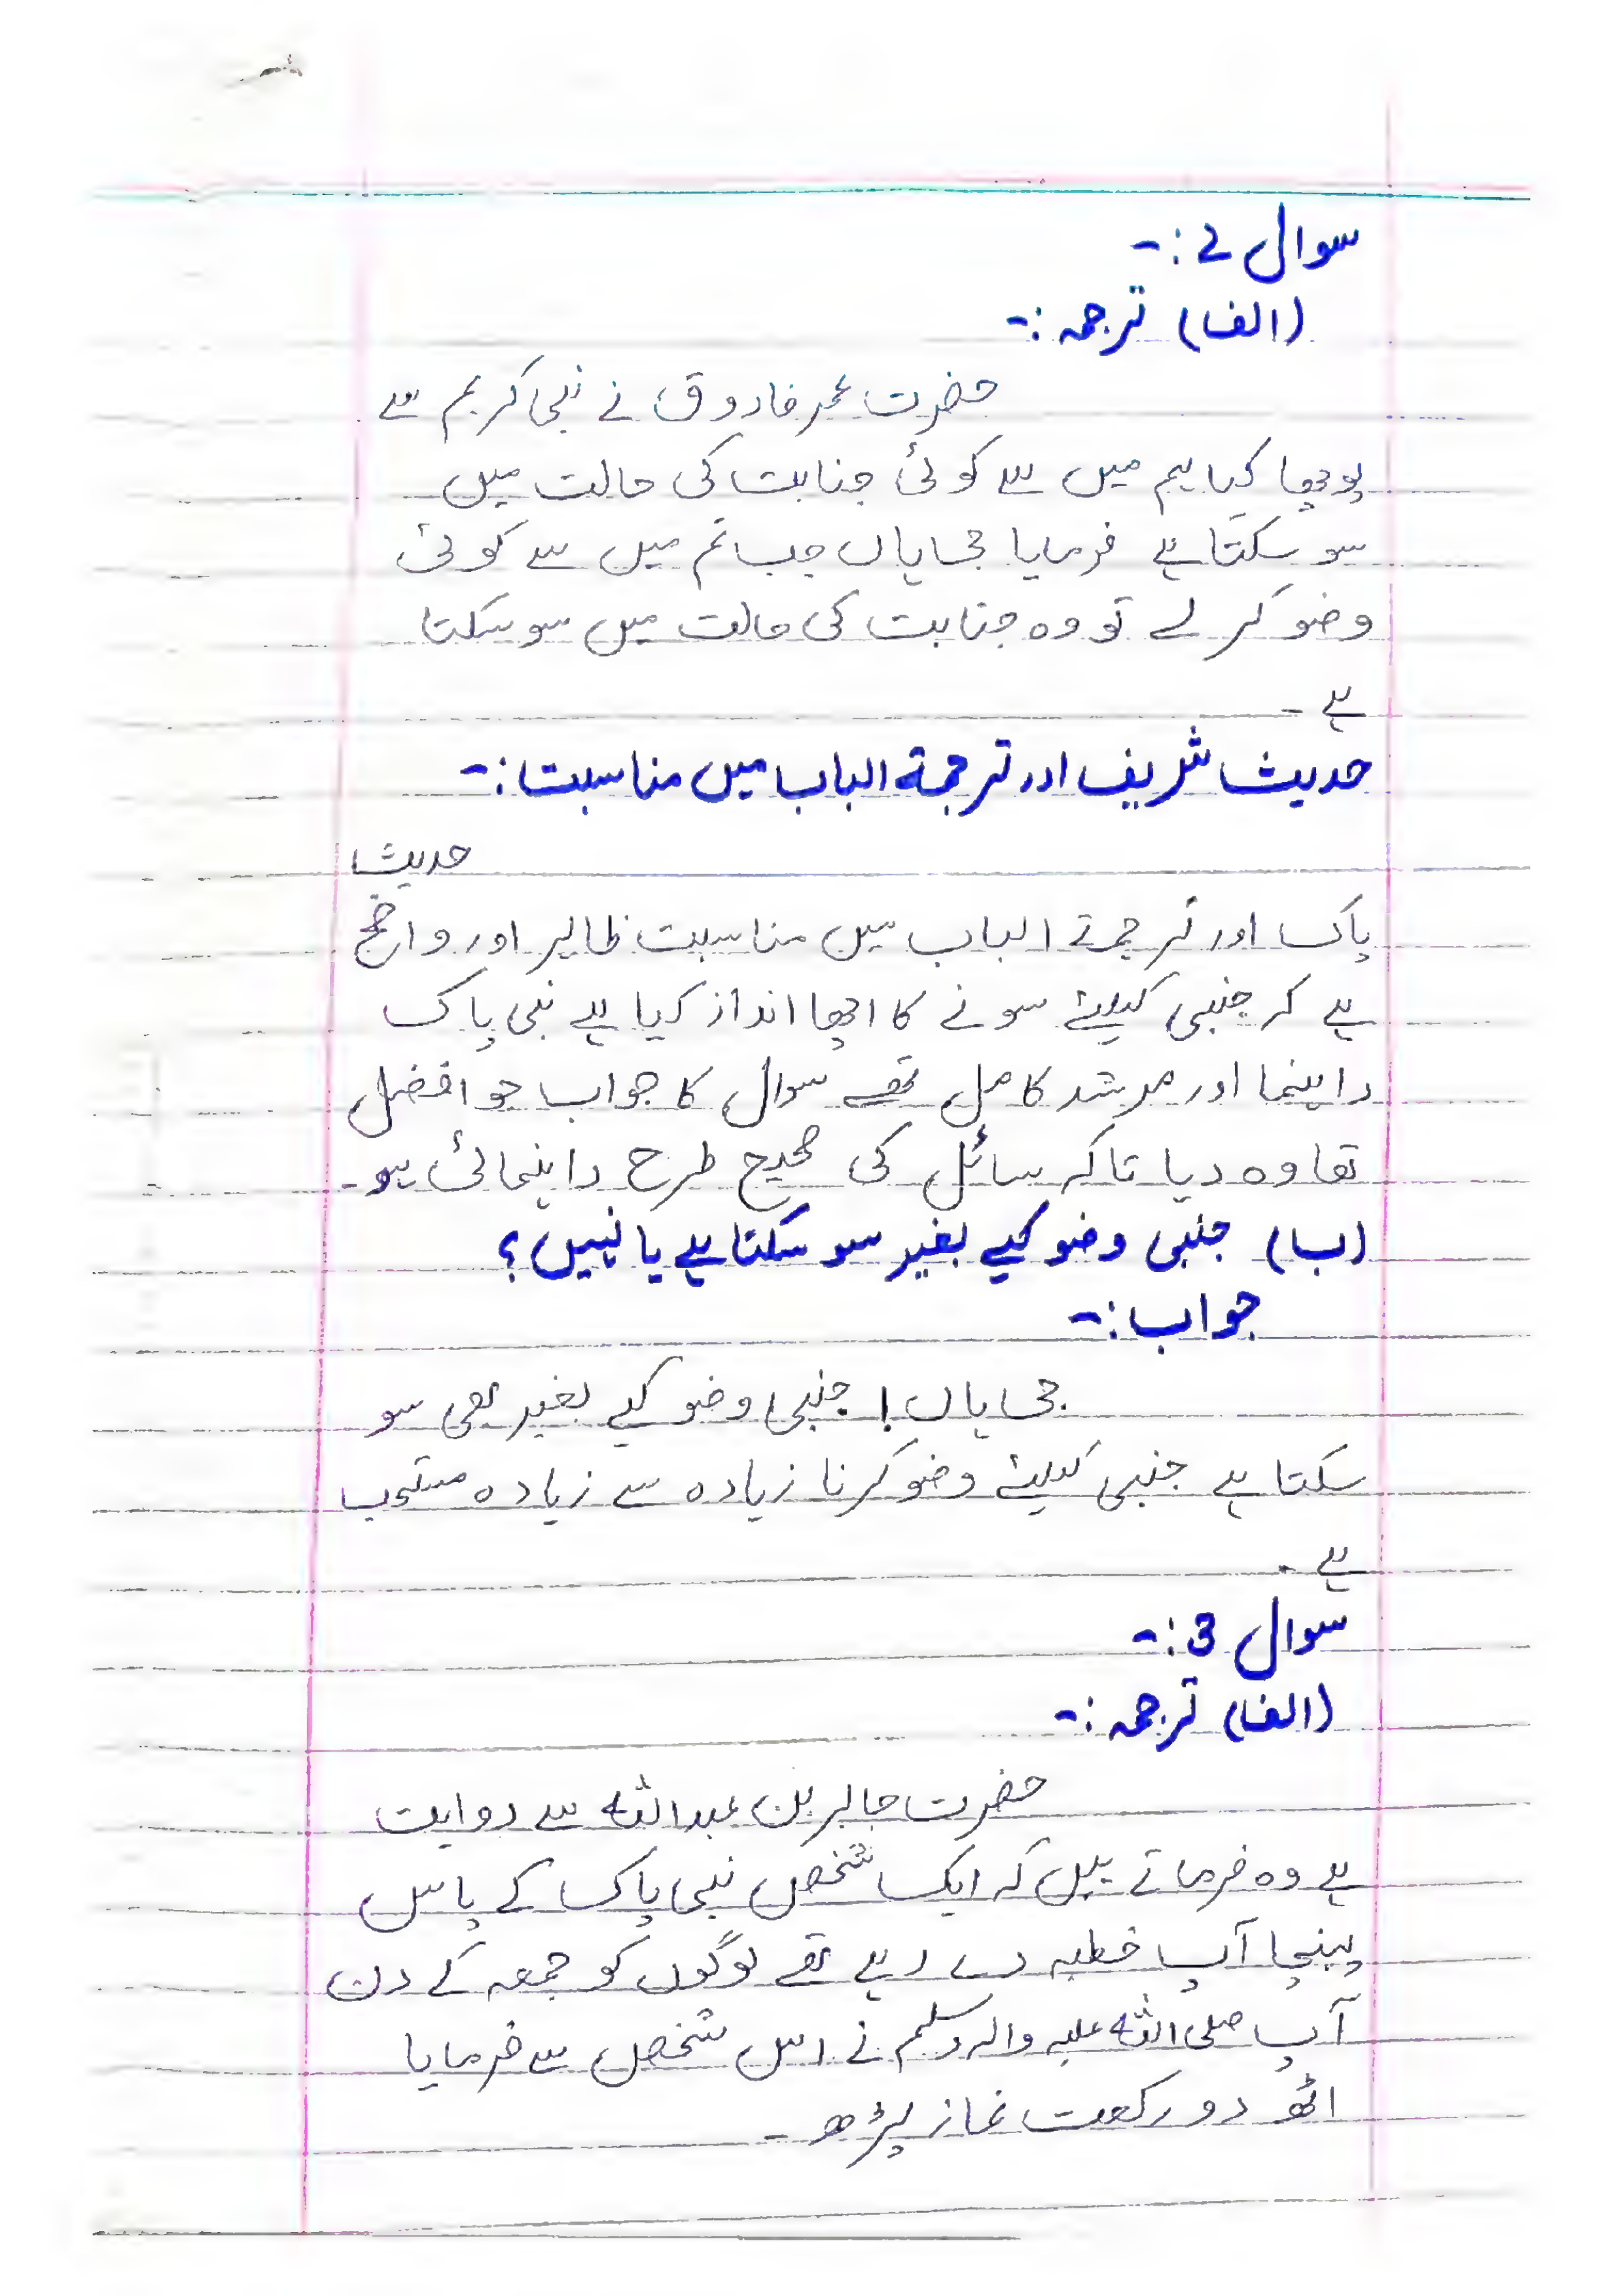 سوال 2 :-
(الف) ترجمہ :-
حضرت عمر فاروق نے نبی کریم سے
پوچھا کیا ہم میں سے کوئی جنابت کی حالت میں
سو سکتا ہے فرمایا جی ہاں جب تم میں سے کوئی
وضو کر لے تو وہ جنابت کی حالت میں سو سکتا
ہے ۔
حدیث شریف اور ترجمۃ الباب میں مناسبت :-
حدیث
پاک اور ترجمتے الباب میں مناسبت ظاہر اور واضح
ہے کہ جنبی کیلئے سونے کا اچھا انداز کیا ہے نبی پاک
راہنما اور مرشد کامل تھے سوال کا جواب جو افضل
تھا وہ دیا تاکہ سائل کی صحیح طرح راہنمائی ہو ۔
(ب) جنبی وضو کیے بغیر سو سکتا ہے یا نہیں ؟
جواب :-
جی ہاں ! جنبی وضو کیے بغیر بھی سو
سکتا ہے جنبی کیلئے وضو کرنا زیادہ سے زیادہ مستحب
ہے ۔
سوال 3 :-
(الف) ترجمہ :-
حضرت جابر بن عبداللہ سے روایت
ہے وہ فرماتے ہیں کہ ایک شخص نبی پاک کے پاس
پہنچا آپ خطبہ دے رہے تھے لوگوں کو جمعہ کے دن
آپ صلی اللہ علیہ والہ وسلم نے اس شخص سے فرمایا
اٹھ دو رکعت نماز پڑھ ۔